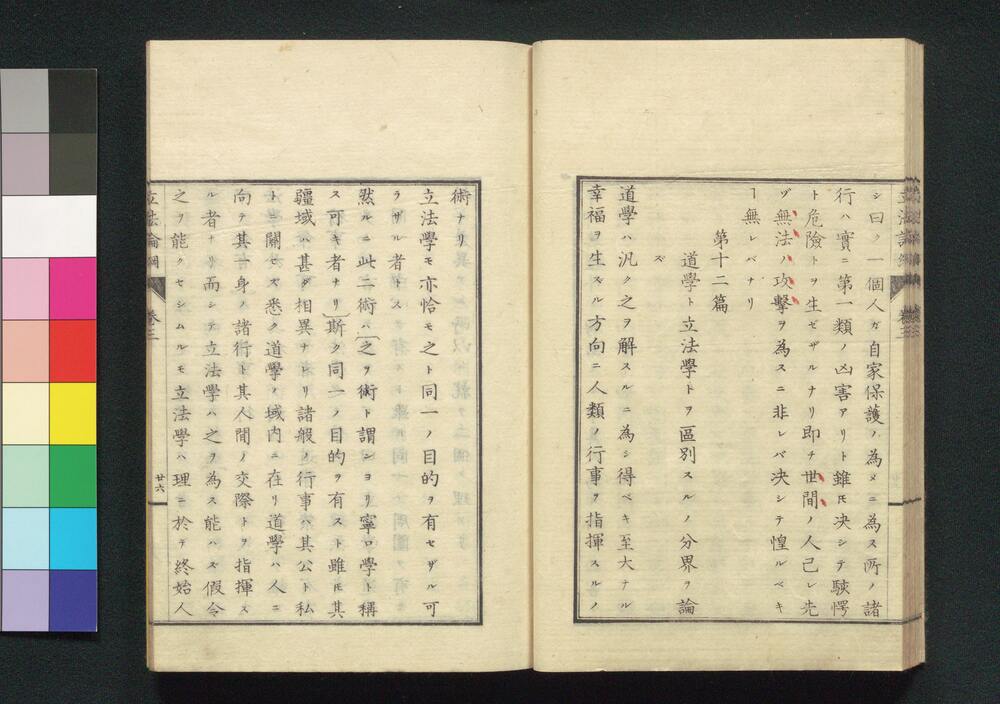 シ曰ク一個人ガ自家保護ノ為メニ為ス所ノ諸
行ハ實ニ第一類ノ凶害アリト雖𪜈決シテ駭愕
ト危險トヲ生ゼザルナリ即チ世間ノ人己レ先
ヅ無法ノ攻擊ヲ為スニ非レバ决シテ惶ルベキ
ヿ無レバナリ
第十二篇
道學ト立法學トヲ區別スルノ分界ヲ論
ズ
道學ハ汎ク之ヲ解スルニ為シ得ベキ至大ナル
幸福ヲ生ズル方向ニ人類ノ行事ヲ指揮スルノ
術ナリ
立法學モ亦恰モ之ト同一ノ目的ヲ有セザル可
ラザル者トス
然ルニ此二術ハ(之ヲ術ト謂ンヨリ寧ロ學ト稱
ス可キ者ナリ)斯ク同一ノ目的ヲ有スト雖𪜈其
疆域ハ甚ダ相異ナレリ諸般ノ行事ハ其公ト私
トニ關セズ悉ク道學ノ域内ニ在リ道學ハ人ニ
向テ其一身ノ諸行ト其人間ノ交際トヲ指揮ス
ル者ナリ而シテ立法學ハ之ヲ為ス能ハズ假令
之ヲ能クセシムルモ立法學ハ理ニ於テ終始人
立法論綱
卷三
廿六